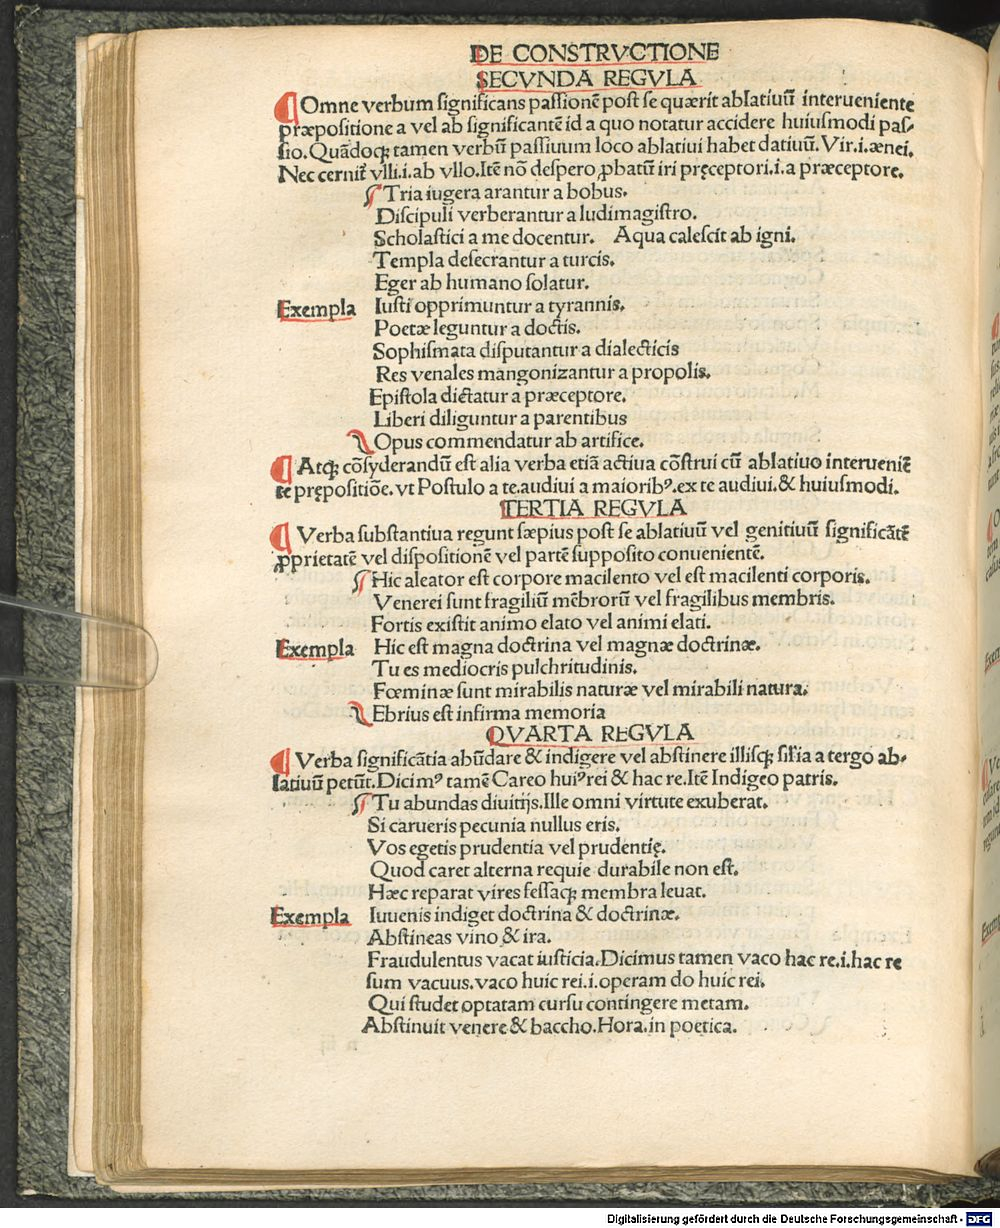 DE CONSTRVCTIONE
SECVNDA REGVLA
¶ Omne verbum significans passionē post se quærit ablatiuū interueniente
præpositione a vel ab significantē id a quo notatur accidere huiusmodi pas-
sio. Quādoqꝫ tamen verbū passiuum loco ablatiui habet datiuū. Vir. i. ænei.
Nec cernit̃ vlli .i. ab vllo. Itē nō despero ꝓbatū iri pręceptori .i. a præceptore.
Tria iugera arantur a bobus.
Discipuli verberantur a ludimagistro.
Scholastici a me docentur. Aqua calescit ab igni.
Templa desecrantur a turcis.
Eger ab humano solatur.
Exempla Iusti opprimuntur a tyrannis.
Poetæ leguntur a doctis.
Sophismata disputantur a dialecticis
Res venales mangonizantur a propolis.
Epistola dictatur a præceptore.
Liberi diliguntur a parentibus
Opus commendatur ab artifice.
¶ Atqꝫ cōsyderandū est alia verba etiā actiua cōstrui cū ablatiuo interueniē
te prępositiōe. vt Postulo a te. audiui a maioribꝰ. ex te audiui. & huiusmodi.
TERTIA REGVLA
¶ Verba substantiua regunt sæpius post se ablatiuū vel genitiuū significātē
ꝓprietatē vel dispositionē vel partē supposito conuenientē.
Hic aleator est corpore macilento vel est macilenti corporis.
Venerei sunt fragiliū mēbrorū vel fragilibus membris.
Fortis existit animo elato vel animi elati.
Exempla Hic est magna doctrina vel magnæ doctrinæ.
Tu es mediocris pulchritudinis.
Fœminæ sunt mirabilis naturæ vel mirabili natura.
Ebrius est infirma memoria
QVARTA REGVLA
¶ Verba significātia abūdare & indigere vel abstinere illisqꝫ sił̃ia a tergo ab-
latiuū petūt. Dicimꝰ tamē Careo huiꝰ rei & hac re. Itē Indigeo patris.
Tu abundas diuitijs. Ille omni virtute exuberat.
Si carueris pecunia nullus eris.
Vos egetis prudentia vel prudentię.
Quod caret alterna requie durabile non est.
Hæc reparat vires fessaqꝫ membra leuat.
Exempla Iuuenis indiget doctrina & doctrinæ.
Abstineas vino & ira.
Fraudulentus vacat iusticia. Dicimus tamen vaco hac re .i. hac re
sum vacuus. vaco huic rei .i. operam do huic rei.
Qui studet optatam cursu contingere metam.
Abstinuit venere & baccho. Hora. in poetica.
Digitalisierung gefördert durch die Deutsche Forschungsgemeinschaft - DFG